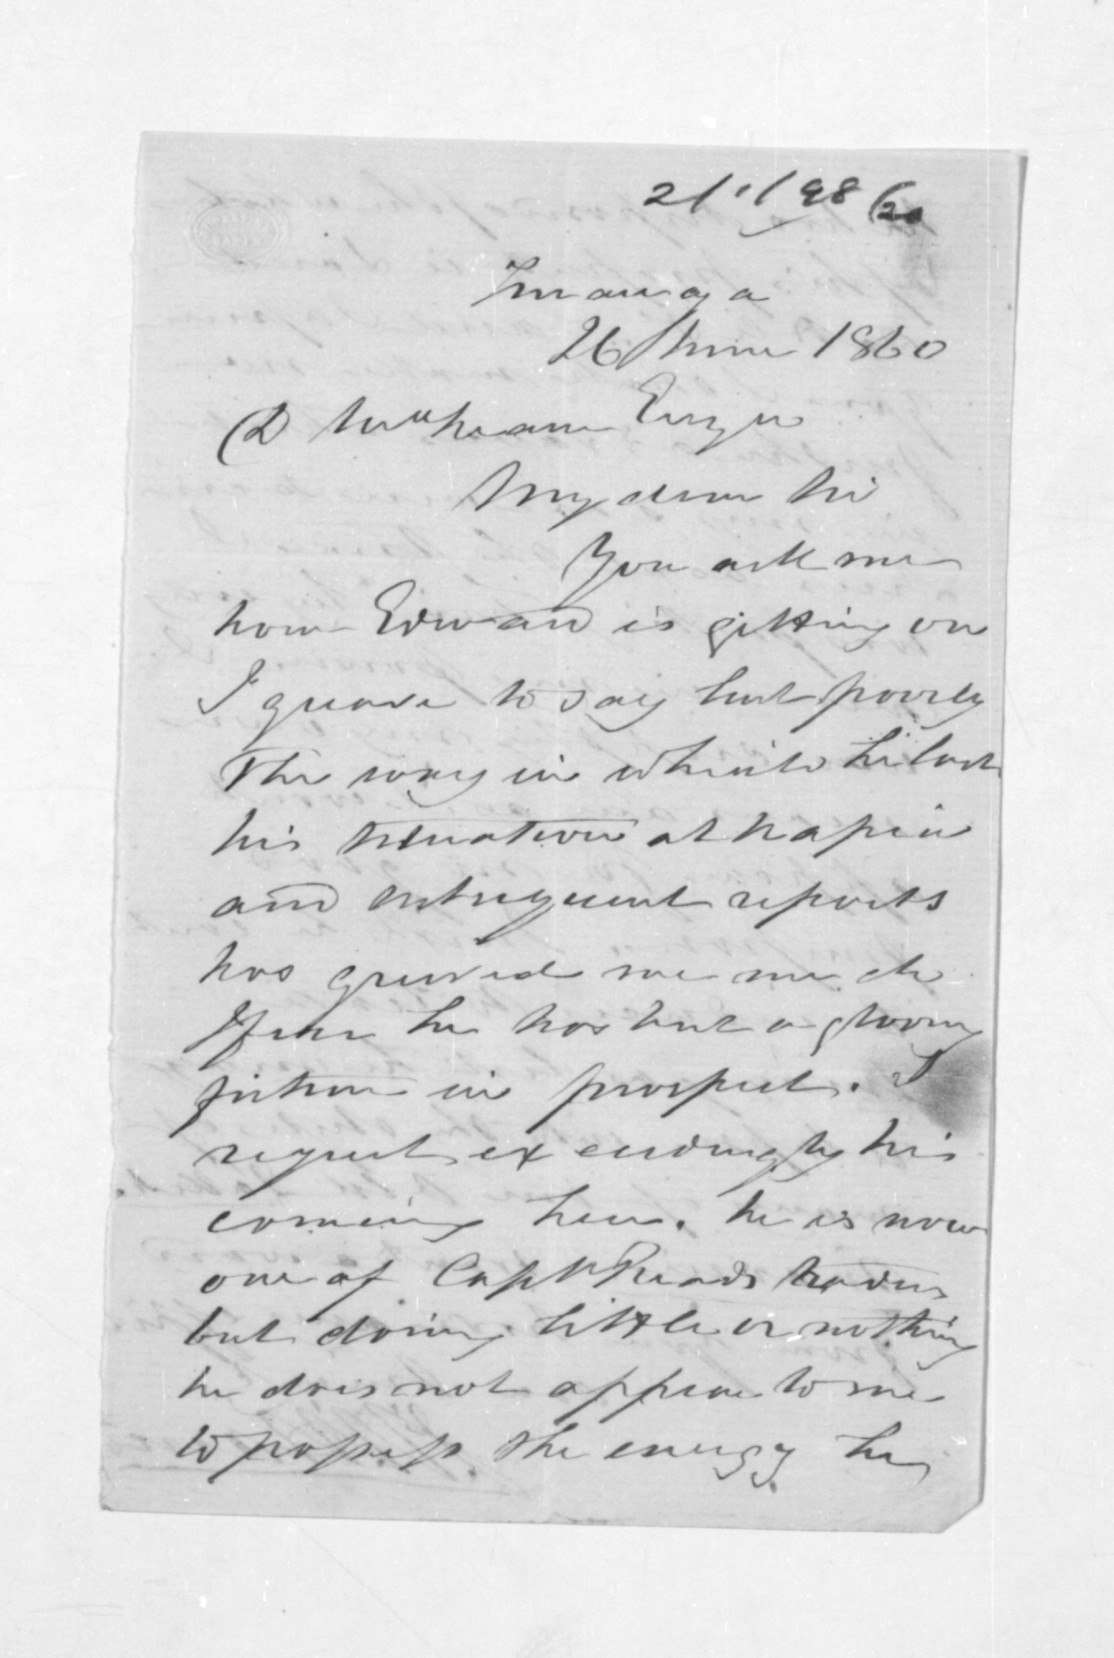 Turanga
26 June 1860
D McLean Esqre
My dear Sir
You ask me
how Edward is getting on
I grieve to say but poorly
The way in which he lost
his situation at Napier
and subsequent reports
has grieved me much
I fear he has but a gloomy
picture in prospect. I
regret exceedingly his
coming here. he is now
one of Captn Reads traders
but doing little or nothing
he does not appear to me
to possess the energy he